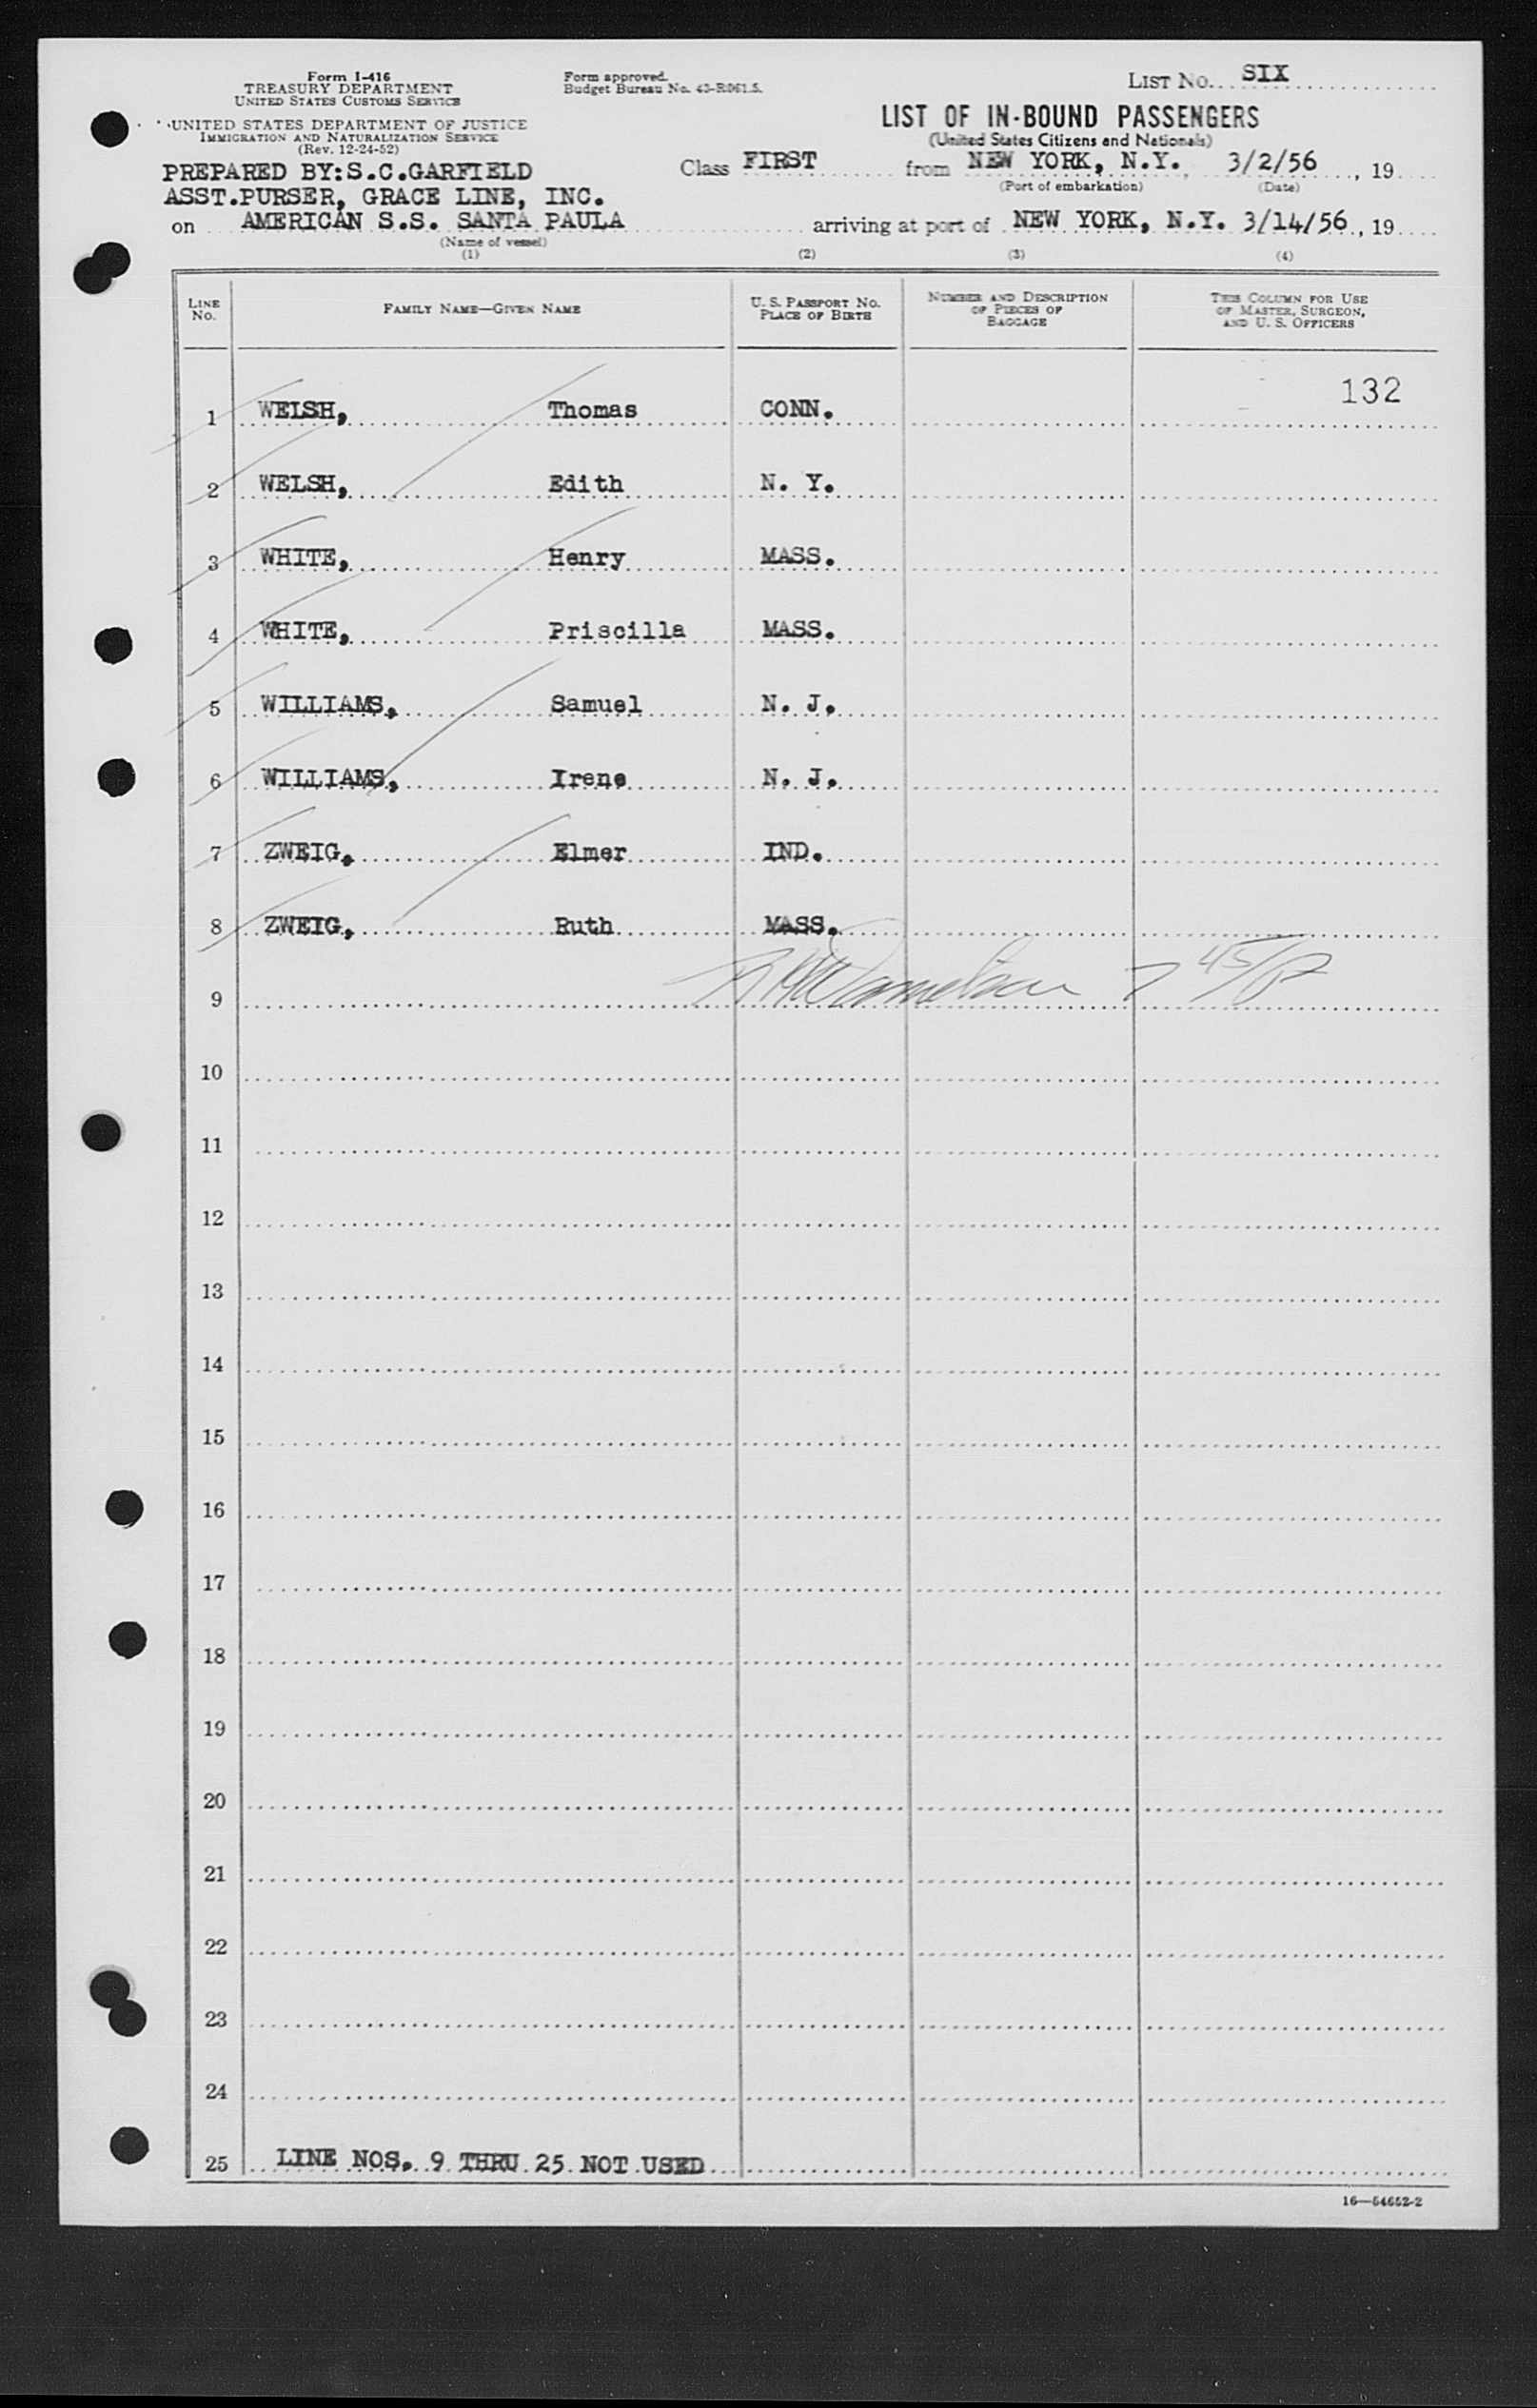 Form I-416
TREASURY DEPARTMENT
UNITED STATES CUSTOMS SERVICE
UNITED STATES DEPARTMENT OF JUSTICE
IMMIGRATION AND NATURALIZATION SERVICE
(Rev. 12-24-52)
Form approved.
Budget Bureau No. 43-R061.5.
LIST NO. SIX
LIST OF IN-BOUND PASSENGERS
(United States Citizens and Nationals)
PREPARED BY:S.C.GARFIELD
ASST.PURSER, GRACE LINE, INC.
Class FIRST from NEW YORK, N.Y. 3/2/56, 19
(Port of embarkation) (Date)
on AMERICAN S.S. SANTA PAULA arriving at port of NEW YORK, N.Y. 3/14/56, 19
(Name of vessel)
(1) (2) (3) (4)
LINE NO. FAMILY NAME—GIVEN NAME U. S. PASSPORT NO. PLACE OF BIRTH NUMBER AND DESCRIPTION OF PIECES OF BAGGAGE THIS COLUMN FOR USE OF MASTER, SURGEON, AND U. S. OFFICERS
132
1 WELSH, Thomas CONN.
2 WELSH, Edith N. Y.
3 WHITE, Henry MASS.
4 WHITE, Priscilla MASS.
5 WILLIAMS, Samuel N. J.
6 WILLIAMS, Irene N. J.
7 ZWEIG, Elmer IND.
8 ZWEIG, Ruth MASS.
9
10
11
12
13
14
15
16
17
18
19
20
21
22
23
24
25 LINE NOS. 9 THRU 25 NOT USED
16—54652-2